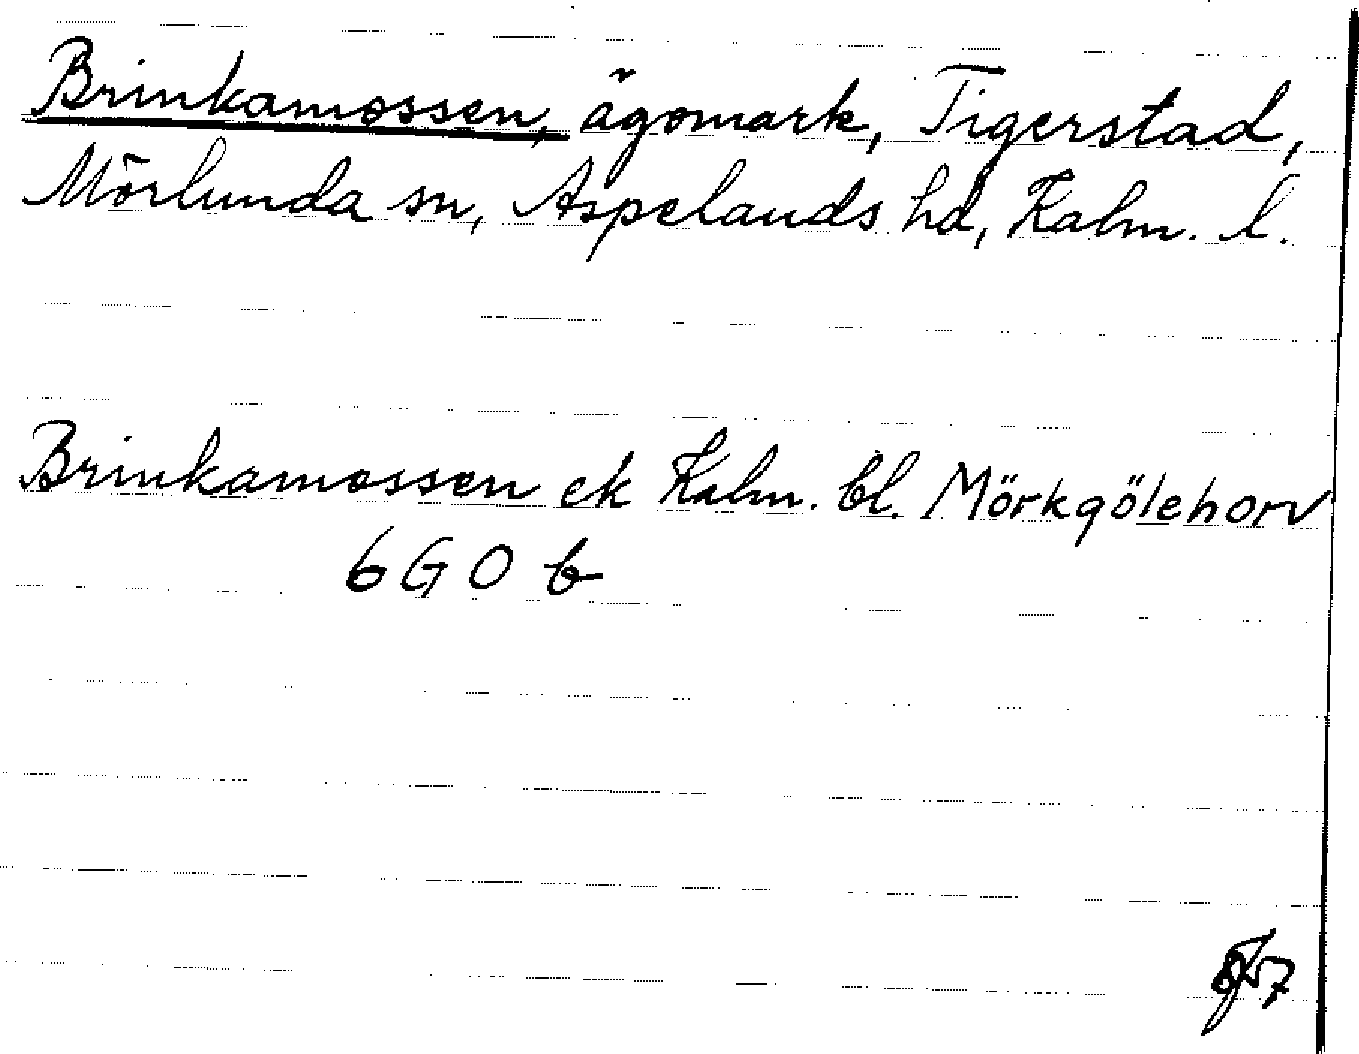 Brinkamossen, ägomark, Tigerstad,
Mörlunda sn, Aspelands hd, Kalm. l.
Brinkamossen ek Kalm. bl. Mörkgölehorv
6 G 0 b